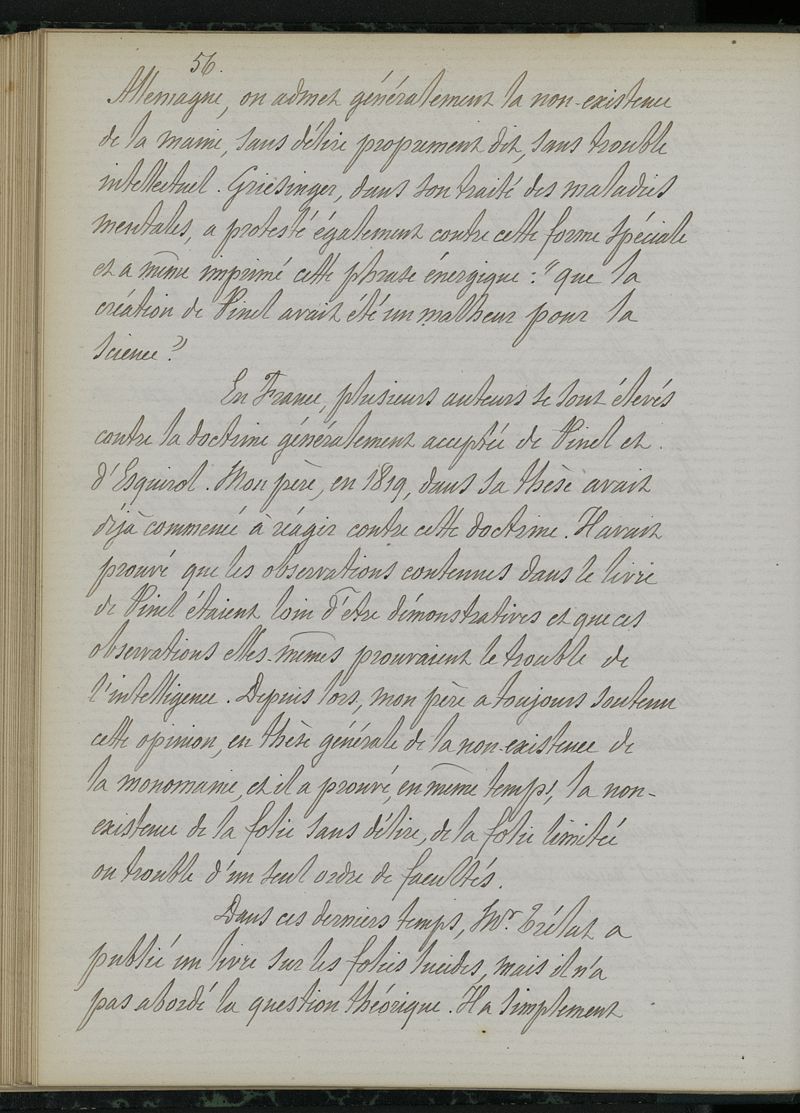 56.
Allemagne, on admet généralement la non-existence
de la manie, sans délire proprement dit, sans trouble
intellectuel. Griesinger, dans son traité des maladies
mentales, a protesté également contre cette forme spéciale
et a même imprimé cette phrase énergique : "que la
création de Pinel avait été un malheur pour la
science."
En France, plusieurs auteurs se sont élevés
contre la doctrine généralement acceptée de Pinel et
d'Esquirol. Mon père, en 1819, dans sa thèse avait
déjà commencé à réagir contre cette doctrine. Il avait
prouvé que les observations contenues dans le livre
de Pinel étaient loin d'être démonstratives et que ces
observations elles-mêmes prouvaient le trouble de
l'intelligence. Depuis lors, mon père a toujours soutenu
cette opinion, en thèse générale de la non-existence de
la monomanie, et il a prouvé, en même temps, la non-
existence de la folie sans délire, de la folie limitée
ou trouble d'un seul ordre de facultés.
Dans ces derniers temps, Mr. Trélat a
publié un livre sur les folies lucides, mais il n'a
pas abordé la question théorique. Il a simplement